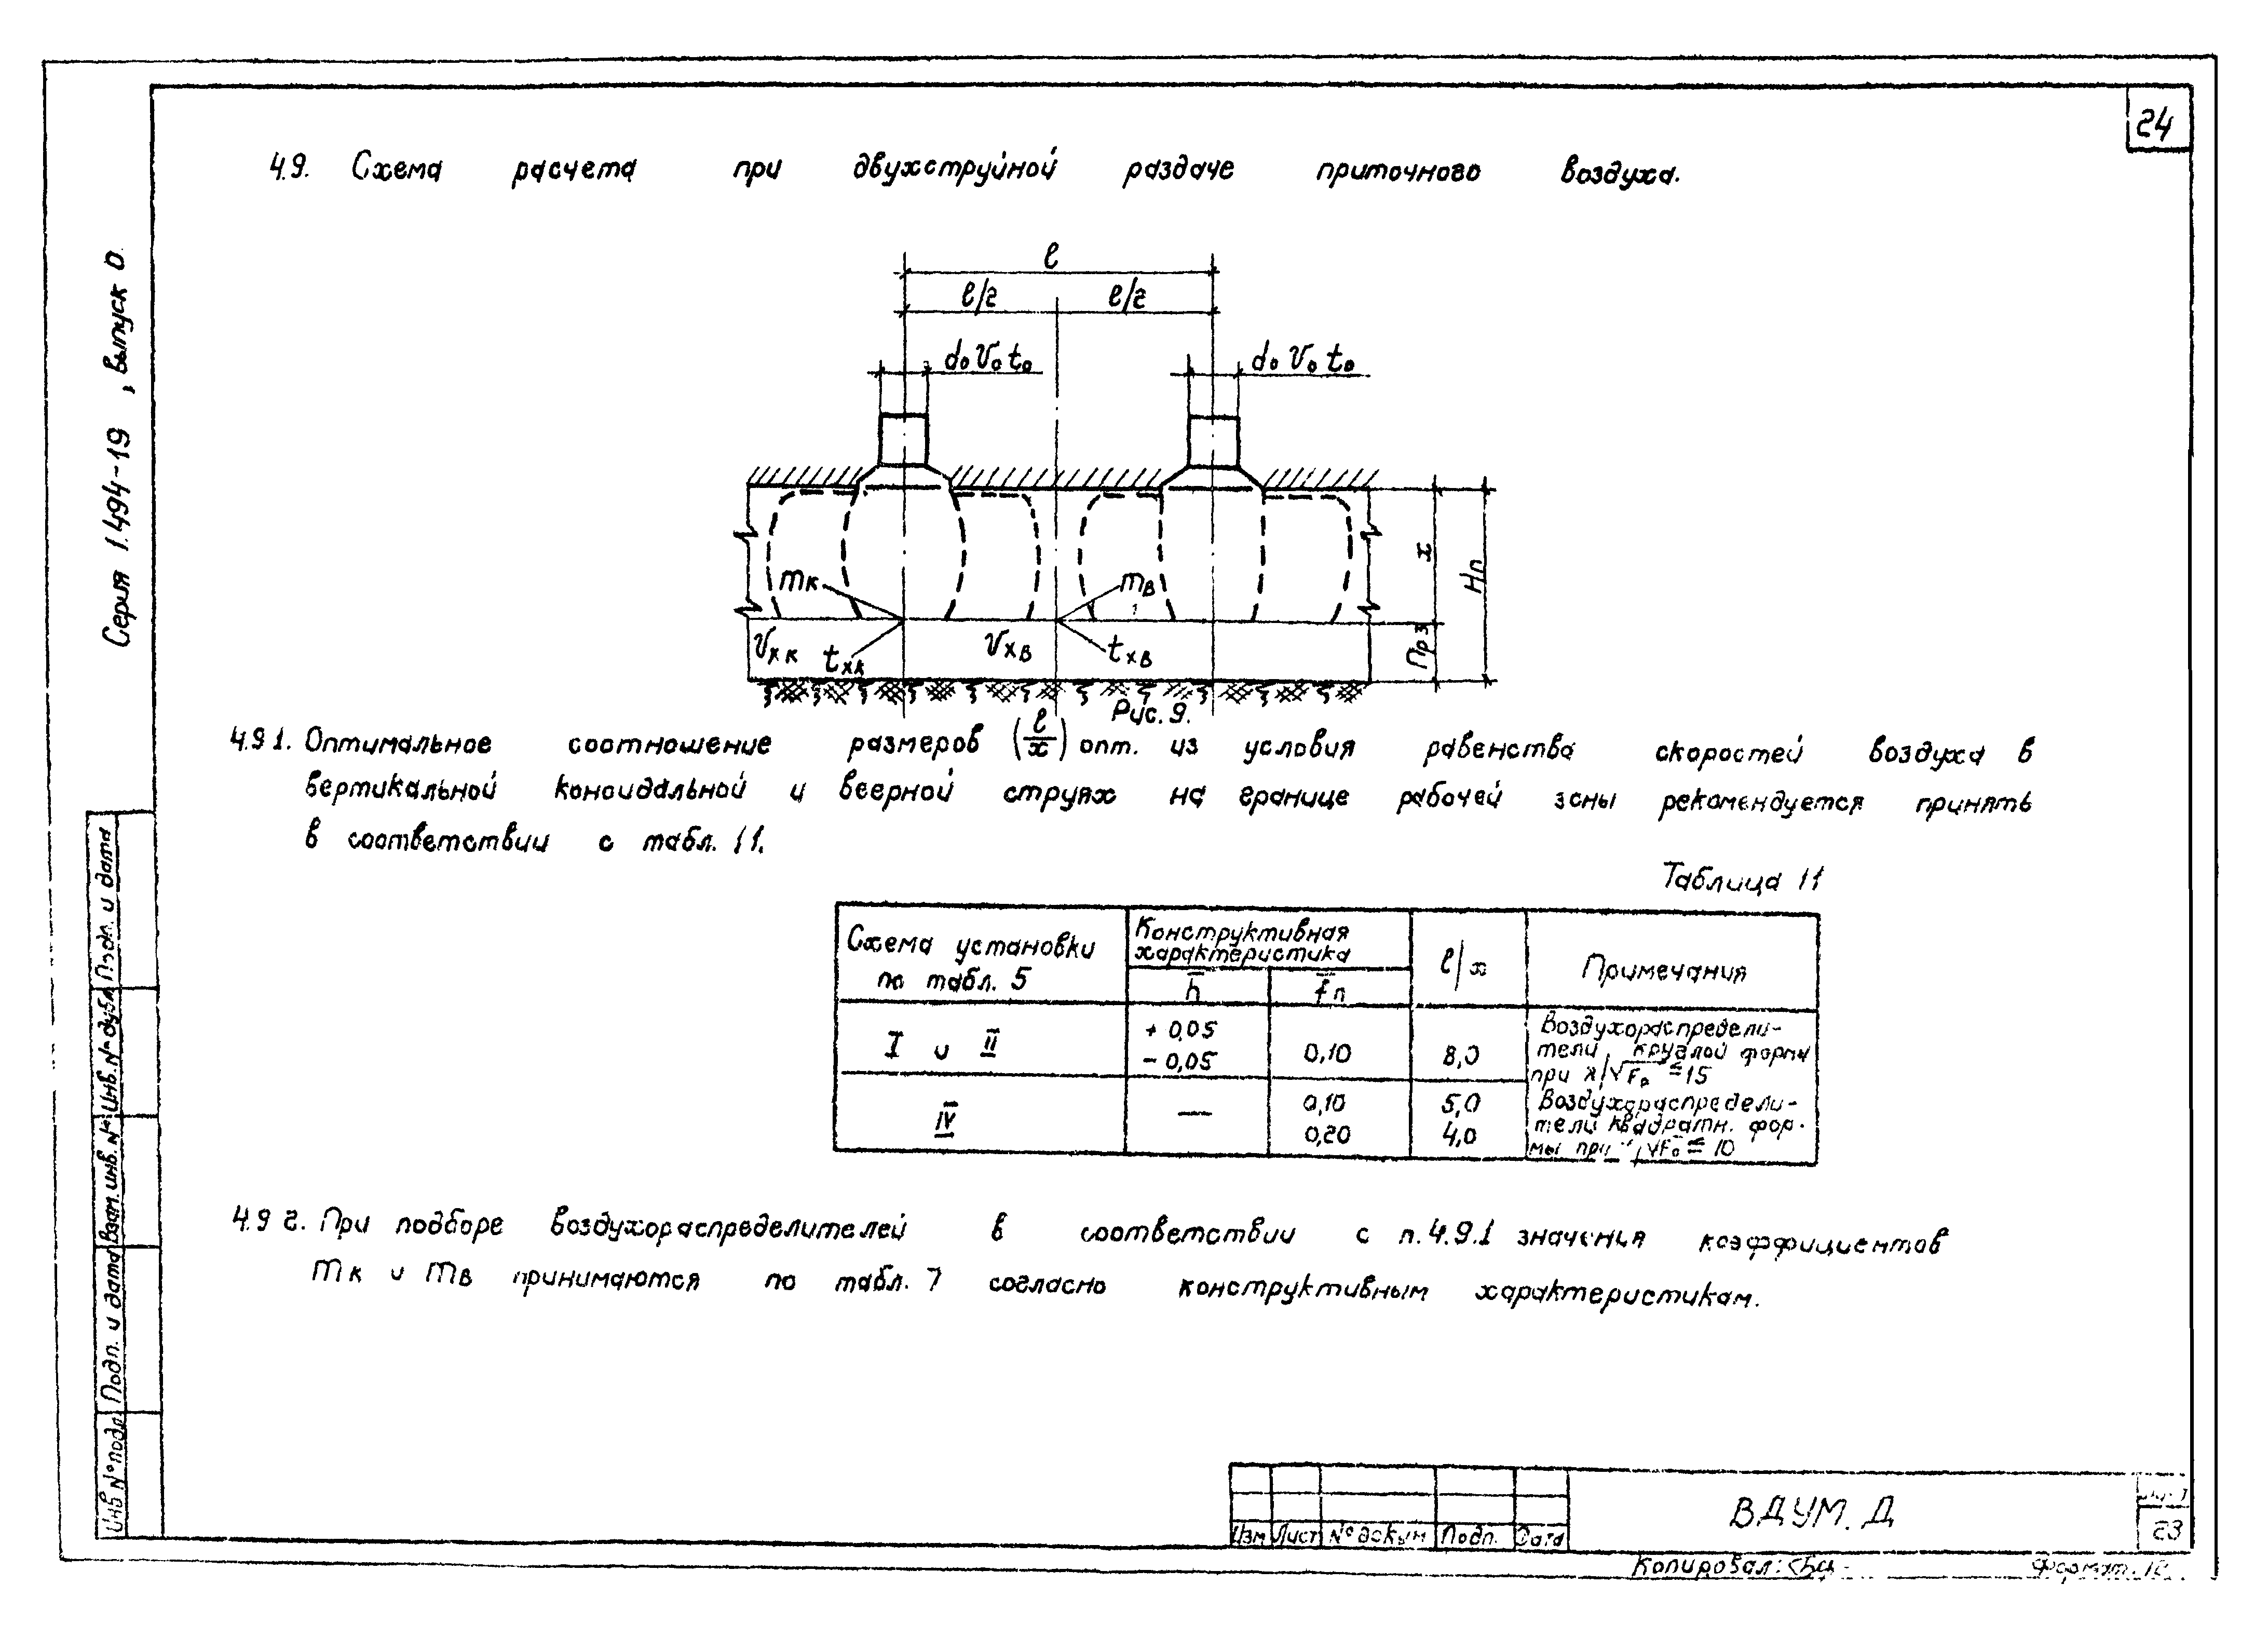 24
4.9. Схема расчета при двухструйной раздаче приточного воздуха.
Серия 1.494-19, выпуск 0.
l
l/2 l/2
d₀ V₀ t₀ d₀ V₀ t₀
x
Hп
mк mв
Vхк tхк Vхв tхв
Рис. 9.
4.9 1. Оптимальное соотношение размеров (l/x) опт. из условия равенства скоростей воздуха в
вертикальной коноидальной и веерной струях на границе рабочей зоны рекомендуется принять
в соответствии с табл. 11.
Таблица 11
Схема установки
по табл. 5
Конструктивная
характеристика
h̄ f̄п
l/x
Примечания
I и II
+ 0,05
- 0,05
0,10
8,0
Воздухораспредели-
тели круглой формы
при x/√F₀ ≤ 15
IV
—
0,10 5,0
0,20 4,0
Воздухораспредели-
тели квадратн. фор-
мы при √F₀ ≤ 10
4.9 2. При подборе воздухораспределителей в соответствии с п. 4.9.1 значения коэффициентов
mк и mв принимаются по табл. 7 согласно конструктивным характеристикам.
Подп. и дата
Инв. № дубл.
Взам. инв. №
Подп. и дата
Инв № подл.
Изм Лист № докум Подп. Дата
ВДУМ. Д
23
Копировал:
Формат 12